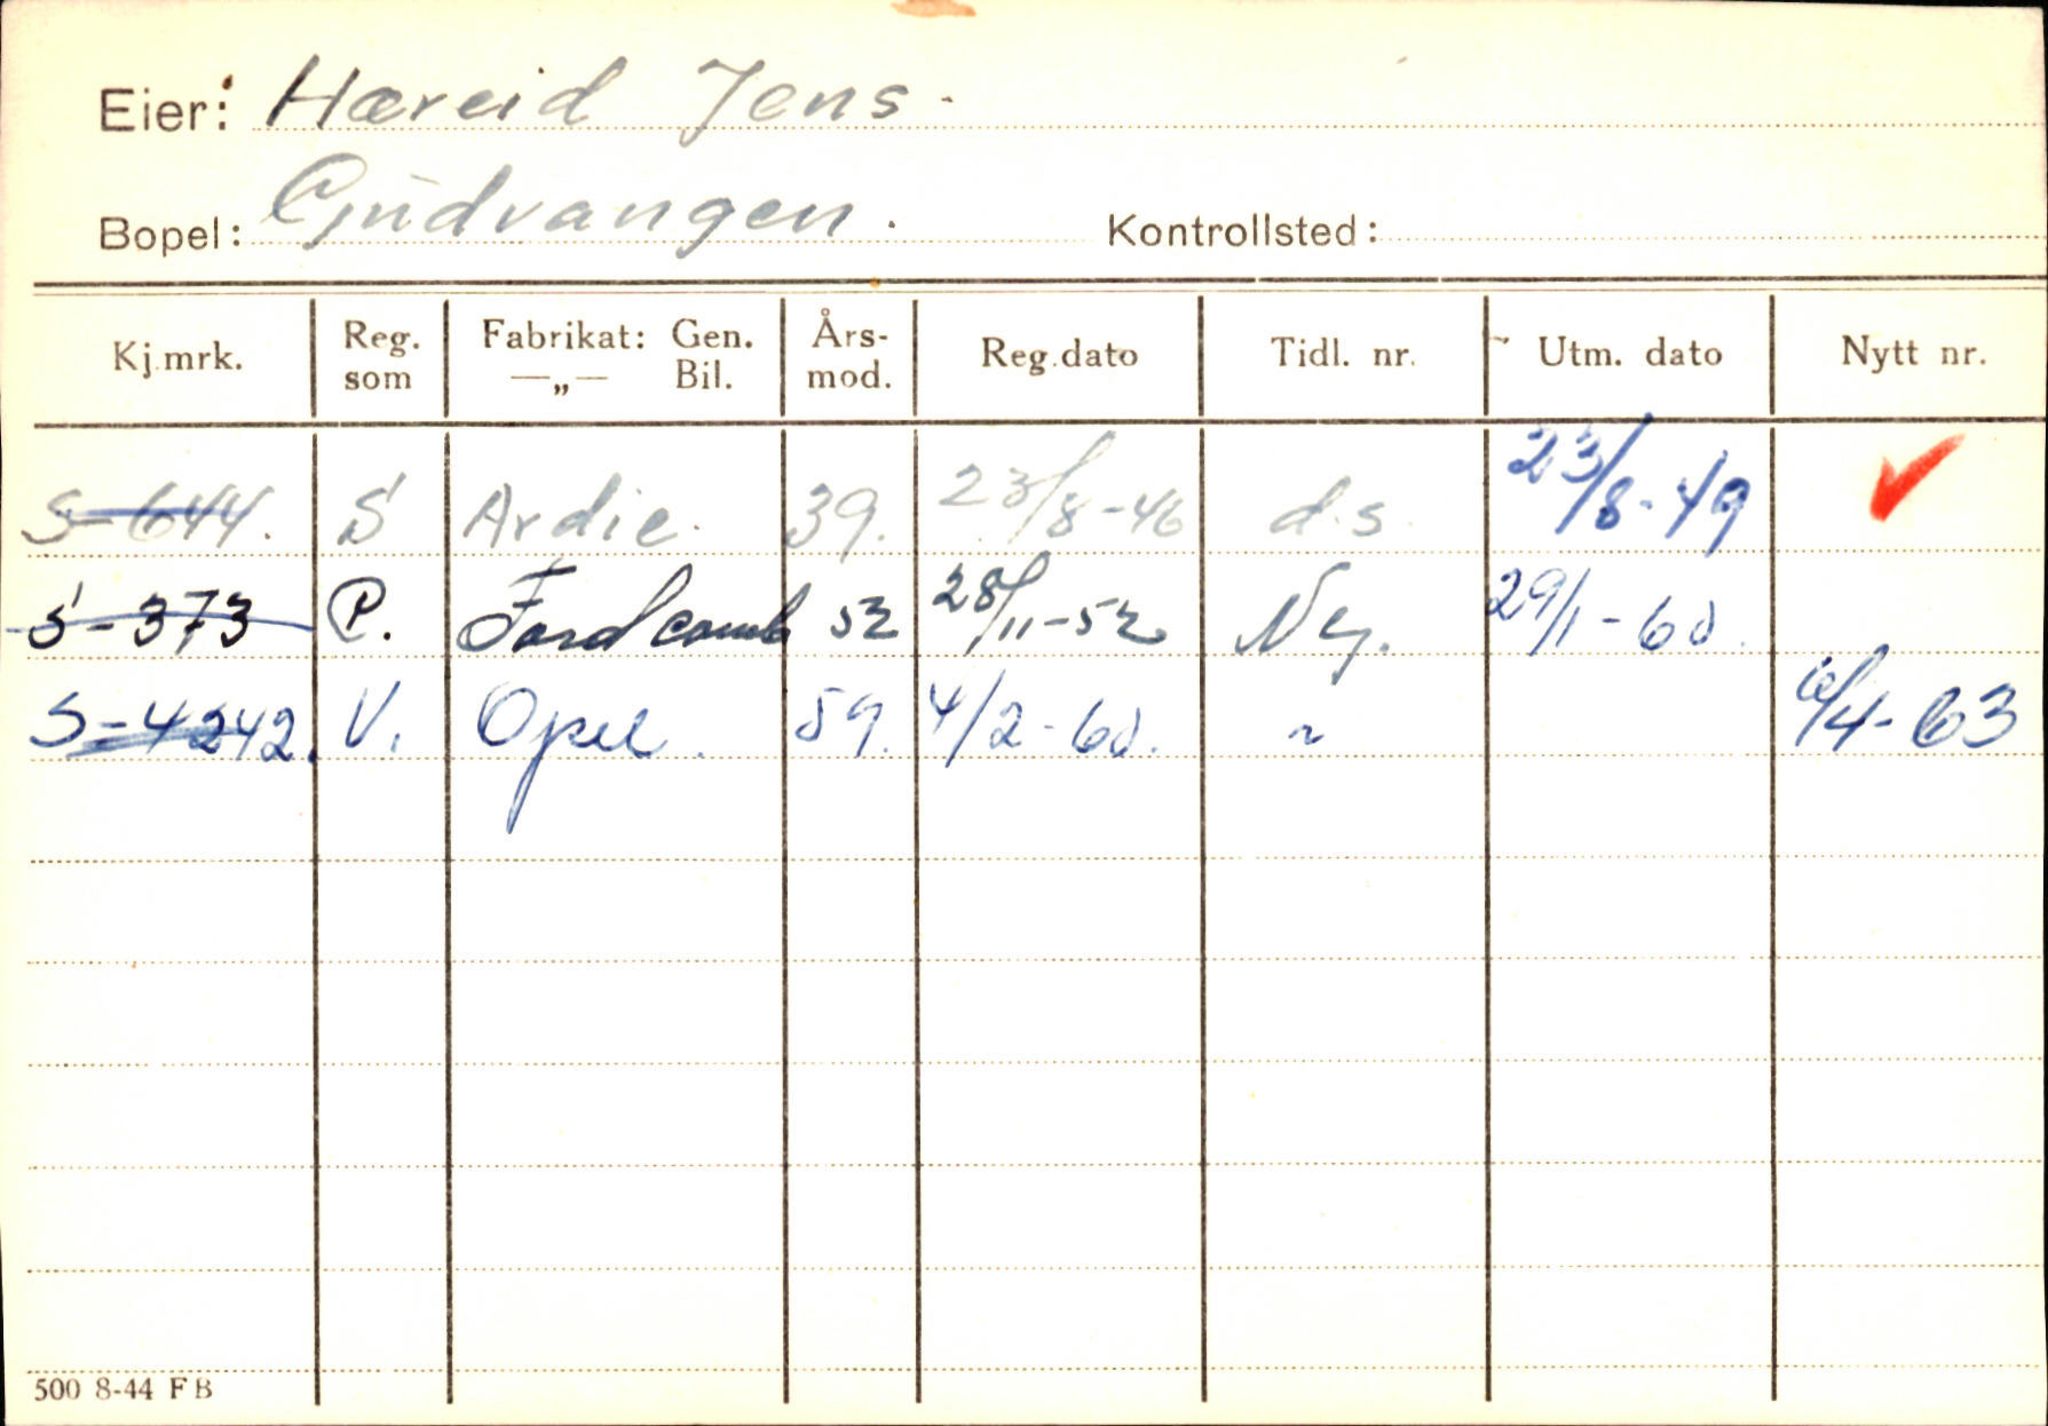 Eier: Hæreid Jens.
Bopel: Gudvangen. Kontrollsted:
Kj.mrk. Reg. som Fabrikat: Gen. —„— Bil. Års-mod. Reg.dato Tidl. nr. Utm. dato Nytt nr.
S-644. S Ardie. 39. 23/8-46 d.s. 23/8-49 ✓
S-373 P. Ford comb 52 28/11-52 Ny. 29/1-60.
S-4242. V. Opel. 59. 4/2-60. ~ 6/4-63
500 8-44 FB